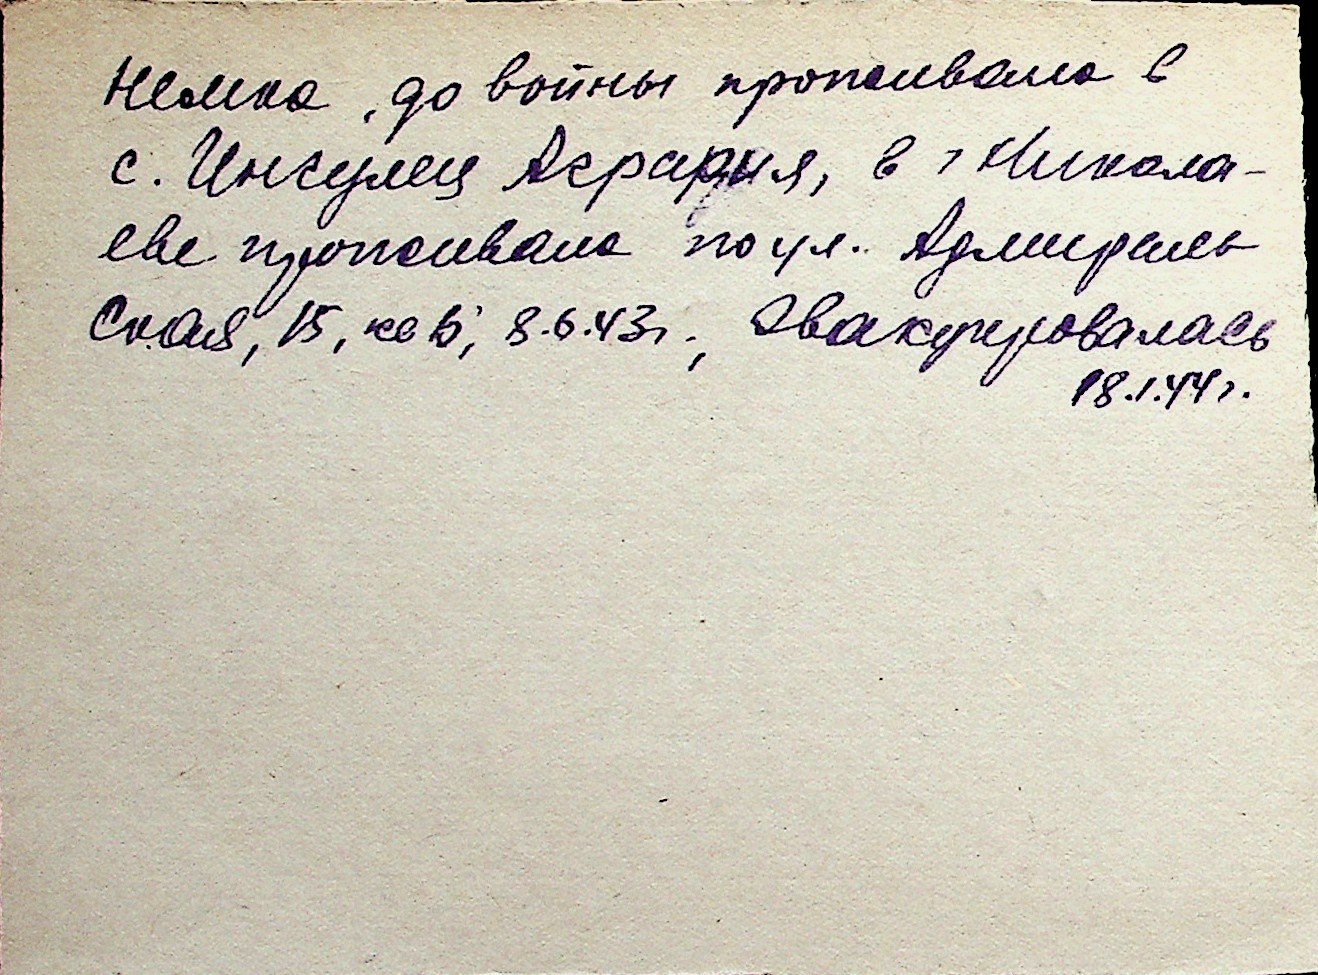 Немка, до войны проживала в
с. Ингулец Агрария, в г Никола-
еве проживала по ул. Адмираль
ская, 15, кв 6, 8.6.43г., Эвакуировалась
18.1.44г.